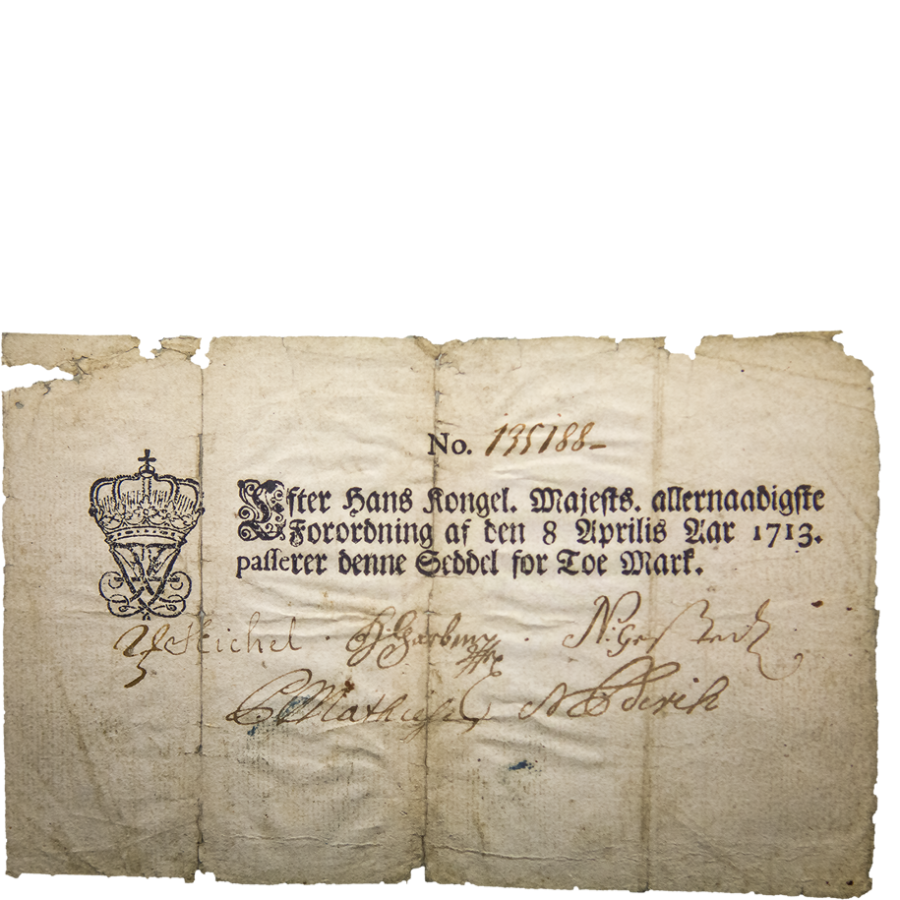 No. 135188
Efter Hans Kongel. Majests. allernaadigste
Forordning af den 8 Aprilis Aar 1713.
passerer denne Seddel for Toe Mark.